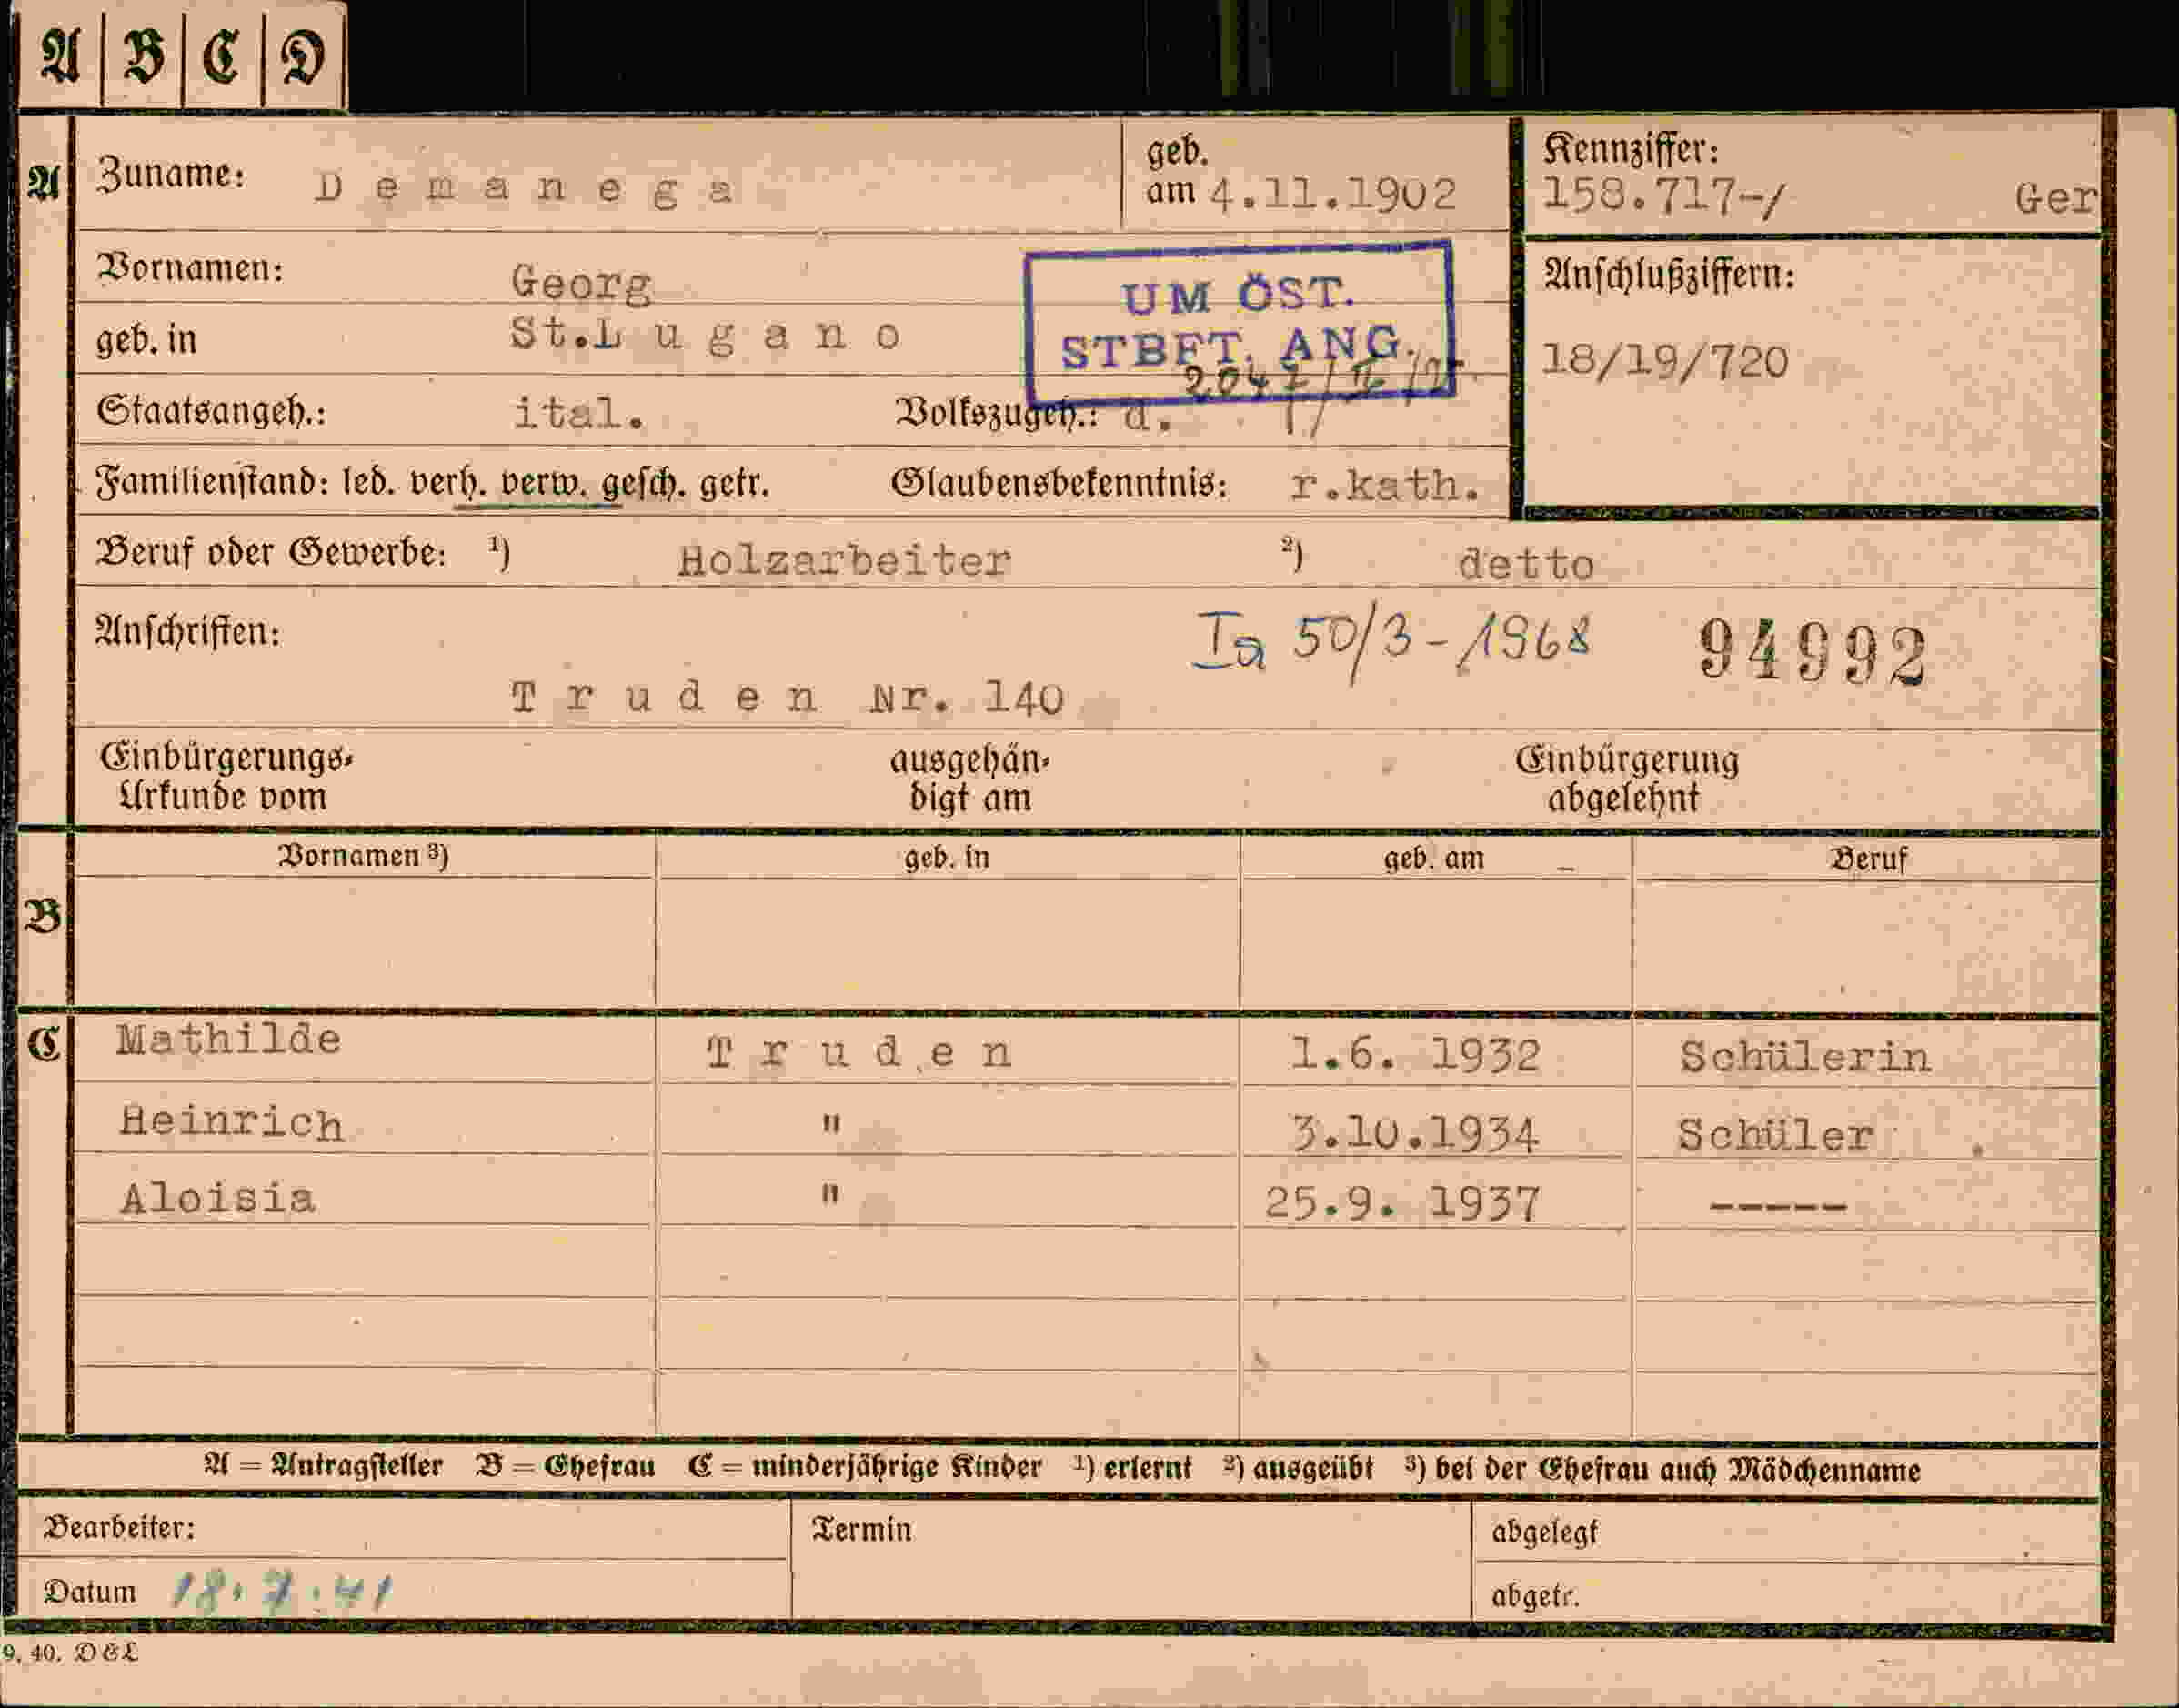 A B C D
A Zuname: Demanega geb. am 4.11.1902 Kennziffer: 158.717-/ Ger
Vornamen: Georg
UM ÖST. STBFT. ANG.
Anschlußziffern: 18/19/720
geb. in St.Lugano
Staatsangeh.: ital. Volkszugeh.: d.
Familienstand: led. verh. verw. gesch. getr. Glaubensbekenntnis: r.kath.
Beruf oder Gewerbe: 1) Holzarbeiter 2) detto
Anschriften: Ia 50/3-1968 94992
Truden Nr. 140
Einbürgerungs- Urkunde vom ausgehän- digt am Einbürgerung abgelehnt
Vornamen 3) geb. in geb. am – Beruf
B
C Mathilde Truden 1.6. 1932 Schülerin
Heinrich " 3.10.1934 Schüler
Aloisia " 25.9. 1937 -----
A = Antragsteller B = Ehefrau C = minderjährige Kinder 1) erlernt 2) ausgeübt 3) bei der Ehefrau auch Mädchenname
Bearbeiter: Termin abgelegt
Datum 18.7.41 abgetr.
9. 40. D&L